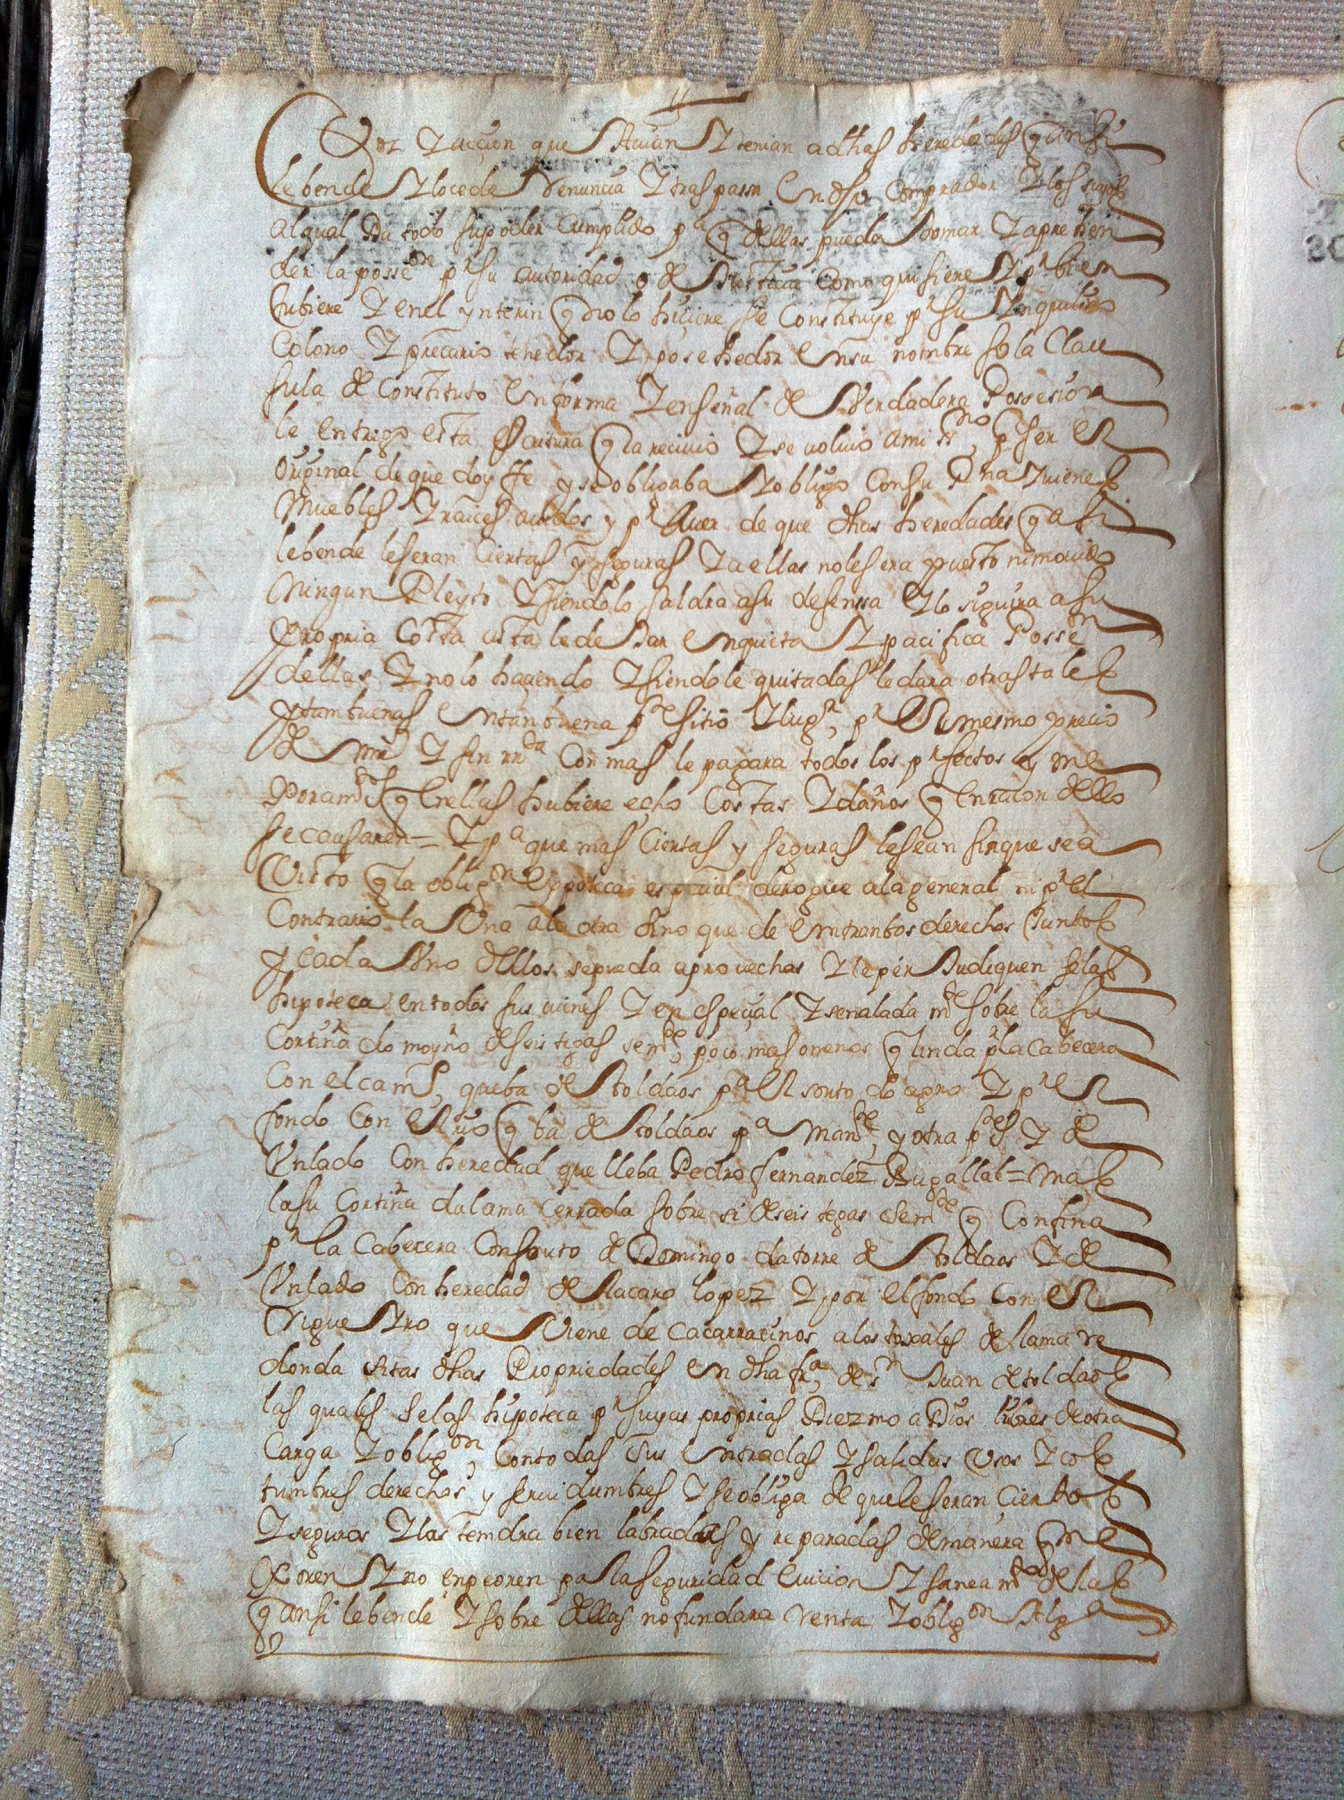 Voz Y acçion que Avian Y tenian a dhas heredades q ansi
le bende Y lo cede Renuncia Y traspassa En dho comprador Y los suyos
al qual Da todo su poder Cumplido pa q dellas pueda tomar Y aprehen
der la posse pr su autoridad o de Justicia Como quisiere Y pr bien
tubiere Y en el ynterin q no lo hiçiere se Constituye pr su Inquilino
Colono Y precario tenedor Y posehedor En su nombre so la Clau
sula de Constituto En forma Y en señal de Verdadera Possesion
le entrego esta escritura q la recivio Y se volvio a mi sno pa ser El
Original de que doy ffe y se obligaba Y obligo Con su Pna Y vienes
Muebles Y raices avidos y pr aver de que dhas heredades q asi
le bende le seran Ciertas y seguras Y a ellas no le sera puesto ni movido
Ningun Pleyto Y siendolo saldra a su defenssa Y lo siguira a su
Propria Costa asta le de Dar En quieta Y pacifica Posse on
dellas Y no lo haçiendo Y siendole quitadas le dara otras tales
Y tam buenas En tan buena pte sitio Y lugr pr El mesmo precio
de Con mas le pagara todos los perfectos y me
Joramtos q En ellas hubiere echo Costas Y daños q En raçon dello
se causaren = Y pa que mas Ciertas y seguras le sean sin que sea
Visto q la obligon E ypoteca espeçial derogue a la general ni pr el
Contrario la Una a la otra sino que de Entranbos derechos Juntos
Y cada Uno dellos se pueda aprovechar Y le perJudiquen se las
hipoteca en todos sus vienes Y en espeçial Y señalada mte sobre la su
Cortiña do moyño de seis tegas semdra poco mas o menos q linda pr la Cabecera
Con el camo que ba de toldaos pa El souto do agro Y pr El
fondo Con El rio q ba de toldaos pa y otra ptes Y de
Un lado Con heredad que lleba Pedro fernandez Bugallal = mas
la su Cortiña da lama Cerrada sobre si de seis tegas semdra q Confina
pr la Cabecera Con souto de Domingo da torre de toldaos Y de
Un lado Con heredad de Macaro lopez Y por El fondo Con El
que Viene de cacarracinos a los toxales de llama re
donda sitas dhas Propriedades En dha fra de sn Juan de toldaos
las quales se las hipoteca pr suyas proprias Diezmo a Dios libres de otra
Carga Y obligon Con todas sus Entradas Y salidas Usos Y cos
tumbres derechos y servidumbres Y se obliga de que le seran Ciertos
Y seguros Y las tendra bien labradas y reparadas de manera q me
Xoren Y no enpeoren pa la seguridad Evicion Y saneamto de las
q ansi le bende Y sobre dellas no fundara renta Y obligon Alga